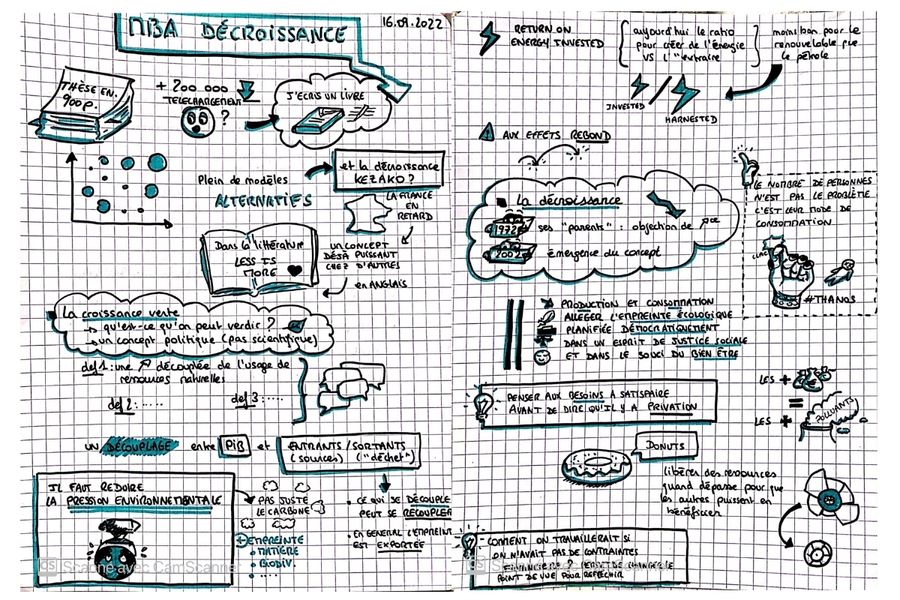 MBA DÉCROISSANCE
16.09.2022
THÈSE EN.
900 p.
+ 200 000
TÉLÉCHARGEMENT
?
J'ECRIS UN LIVRE
et la décroissance
KEZAKO ?
Plein de modèles
ALTERNATIFS
LA FRANCE
EN
RETARD
Dans la littérature
LESS IS
MORE
UN CONCEPT
DÉJÀ PUISSANT
CHEZ D'AUTRES
en ANGLAIS
La croissance verte
→ qu'est-ce qu'on peut verdir ?
→ un concept politique (pas scientifique)
def 1 : une ↗ découplée de l'usage de
ressources naturelles
def 2 : .....
def 3 : ....
un DÉCOUPLAGE entre PIB et
ENTRANTS / SORTANTS
(sources) ("déchet")
IL FAUT REDUIRE
LA PRESSION ENVIRONNEMENTALE
→ PAS JUSTE
LE CARBONE
+ EMPREINTE
• MATIÈRE
• BIODIV.
• ....
• CE QUI SE DÉCOUPLE
PEUT SE RECOUPLER
• EN GENERAL L'EMPREINT
EST EXPORTÉE
CS Scanné avec CamScanner
RETURN ON
ENERGY INVESTED
aujourd'hui le ratio
pour créer de l'énergie
VS l'"extraire"
moins bon pour le
renouvelable que
le pétrole
INVESTED
/
HARNESTED
! AUX EFFETS REBOND
La décroissance
1972 ses "parents" : objection de
2002 émergence du concept
LE NOMBRE DE PERSONNES
N'EST PAS LE PROBLÈME
C'EST LEUR MODE DE
CONSOMMATION
CLAC
#THANOS
PRODUCTION ET CONSOMMATION
ALLEGER L'EMPREINTE ÉCOLOGIQUE
PLANIFIÉE DÉMOCRATIQUEMENT
DANS UN ESPRIT DE JUSTICE SOCIALE
ET DANS LE SOUCI DU BIEN ÊTRE
PENSER AUX BESOINS À SATISFAIRE
AVANT DE DIRE QU'IL Y A PRIVATION
LES +
=
LES +
POLLUANTS
DONUTS
libérer des ressources
quand dépassé pour que
les autres puissent en
bénéficier
- COMMENT ON TRAVAILLERAIT SI
ON N'AVAIT PAS DE CONTRAINTES
FINANCIERE ? PERMET DE CHANGER LE
POINT DE VUE POUR REFLECHIR